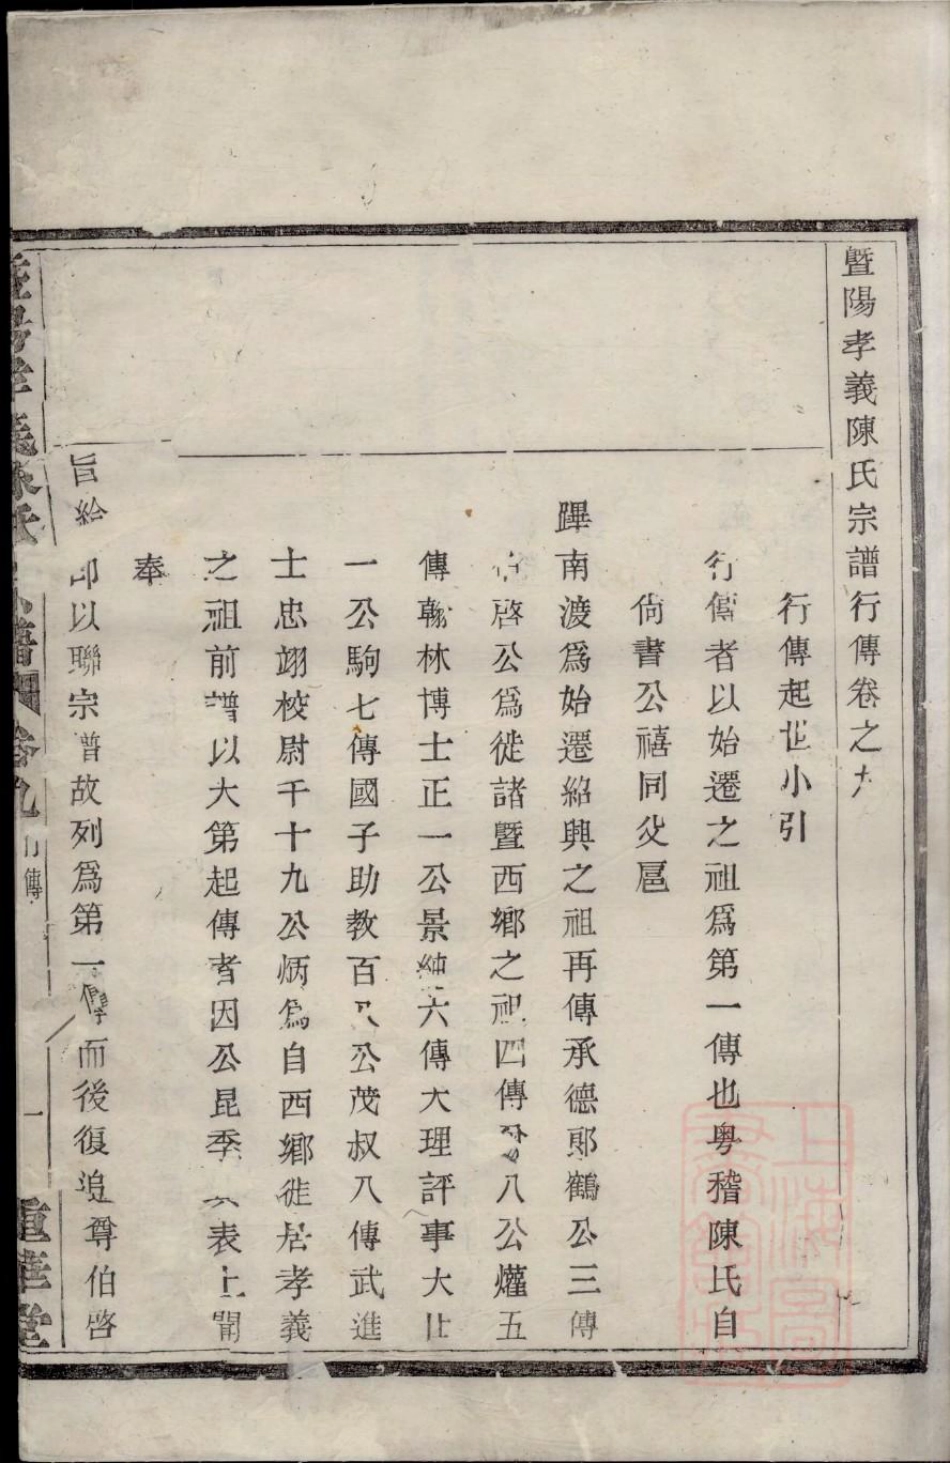 暨陽孝義陳氏宗譜行傳卷之九
行傳起世小引
行傳者以始遷之祖爲第一傳也粤稽陳氏自
尙書公禧同父扈
蹕南渡爲始遷紹興之祖再傳承德郞鶴公三傳
伯啓公爲徙諸暨西鄕之祖四傳 八公爟五
傳翰林博士正一公景純六傳大理評事大
一公駒七傳國子助教百 公茂叔八傳武進
士忠翊校尉千十九公炳爲自西鄕徙居孝義
之祖前譜以大第起傳者因公昆季 表上聞
奉
旨給
印以聯宗譜故列爲第一傳而後復追尊伯啓
暨陽孝義陳氏宗譜 卷九 行傳 一 重華堂
上海圖書館藏